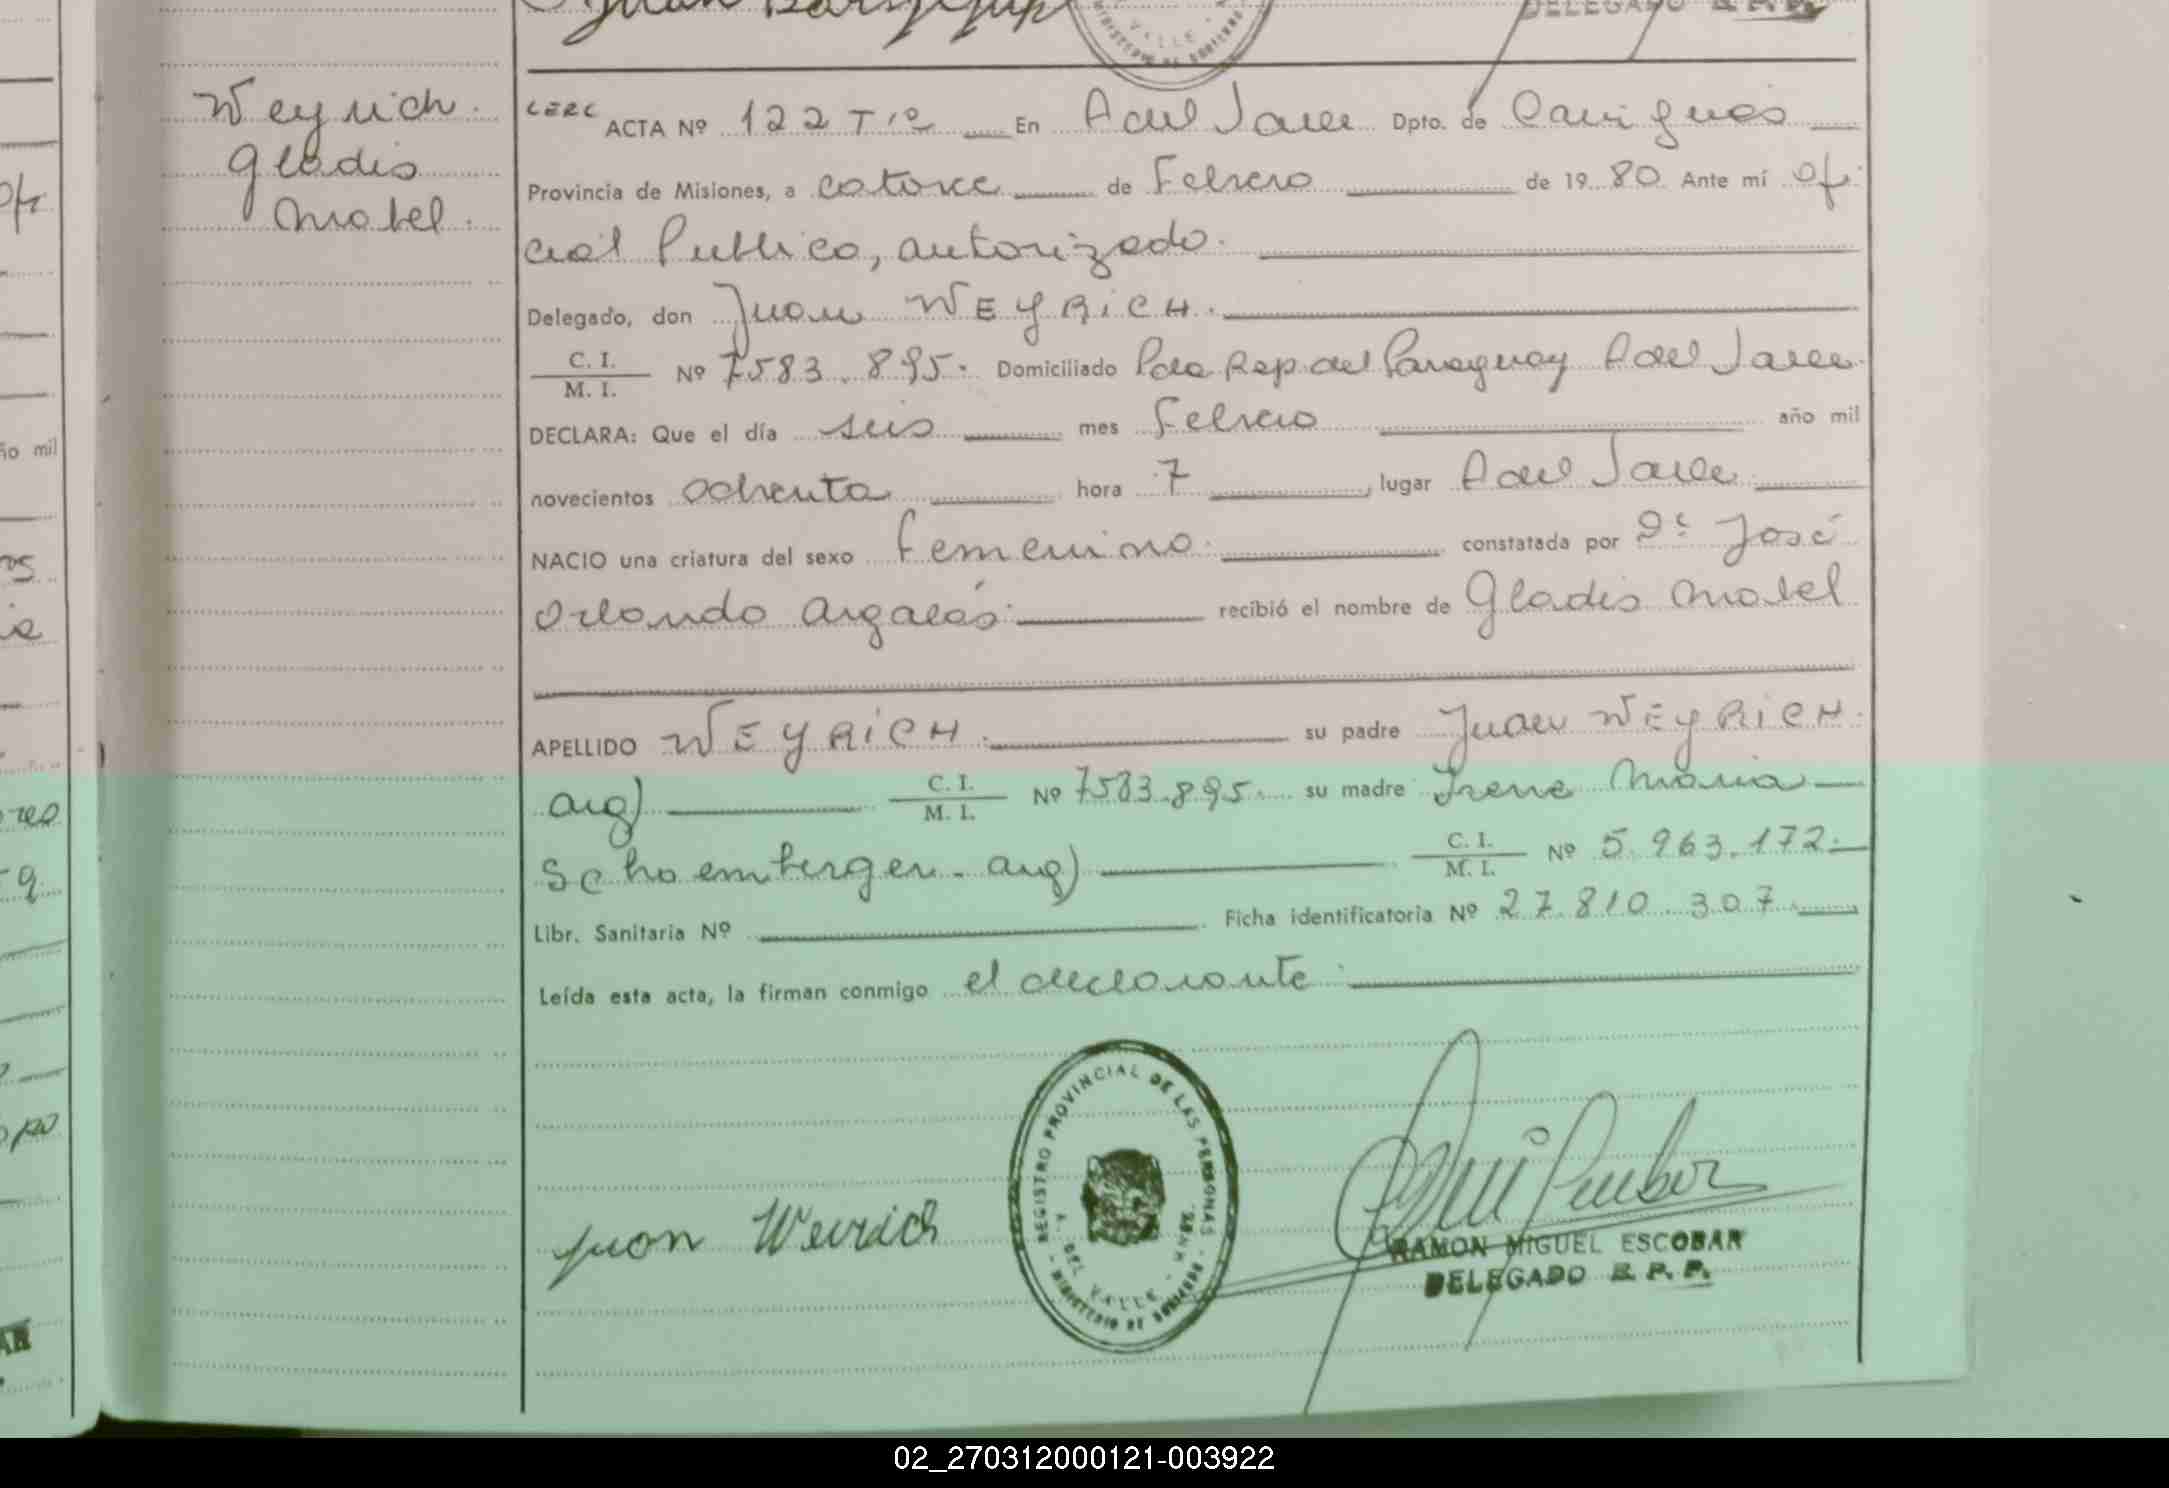 DELEGADO R. P. P.
Weyrich.
Gladis
Mabel.
ACTA Nº 122 Tº En A del Valle Dpto. de Cainguás
Provincia de Misiones, a catorce de Febrero de 1980 Ante mí Ofi
cial Publico, autorizado.
Delegado, don Juan WEYRICH.
C. I.
M. I. Nº 7583.895. Domiciliado Pda Rep. del Paraguay A del Valle.
DECLARA: Que el día seis mes Febrero año mil
novecientos ochenta hora 7, lugar A del Valle
NACIO una criatura del sexo femenino. constatada por Dr José
Orlando Argarás. recibió el nombre de Gladis Mabel
APELLIDO WEYRICH. su padre Juan WEYRICH.
arg) C. I.
M. I. Nº 7583.895. su madre Irene Maria
Schoemberger. arg) C. I.
M. I. Nº 5.963.172.
Libr. Sanitaria Nº Ficha identificatoria Nº 27.810.307.
Leída esta acta, la firman conmigo el declarante.
REGISTRO PROVINCIAL DE LAS PERSONAS
MINISTERIO DE GOBIERNO
A. DEL VALLE - MNES.
Juan Weirich
RAMON MIGUEL ESCOBAR
DELEGADO R. P. P.
02_270312000121-003922